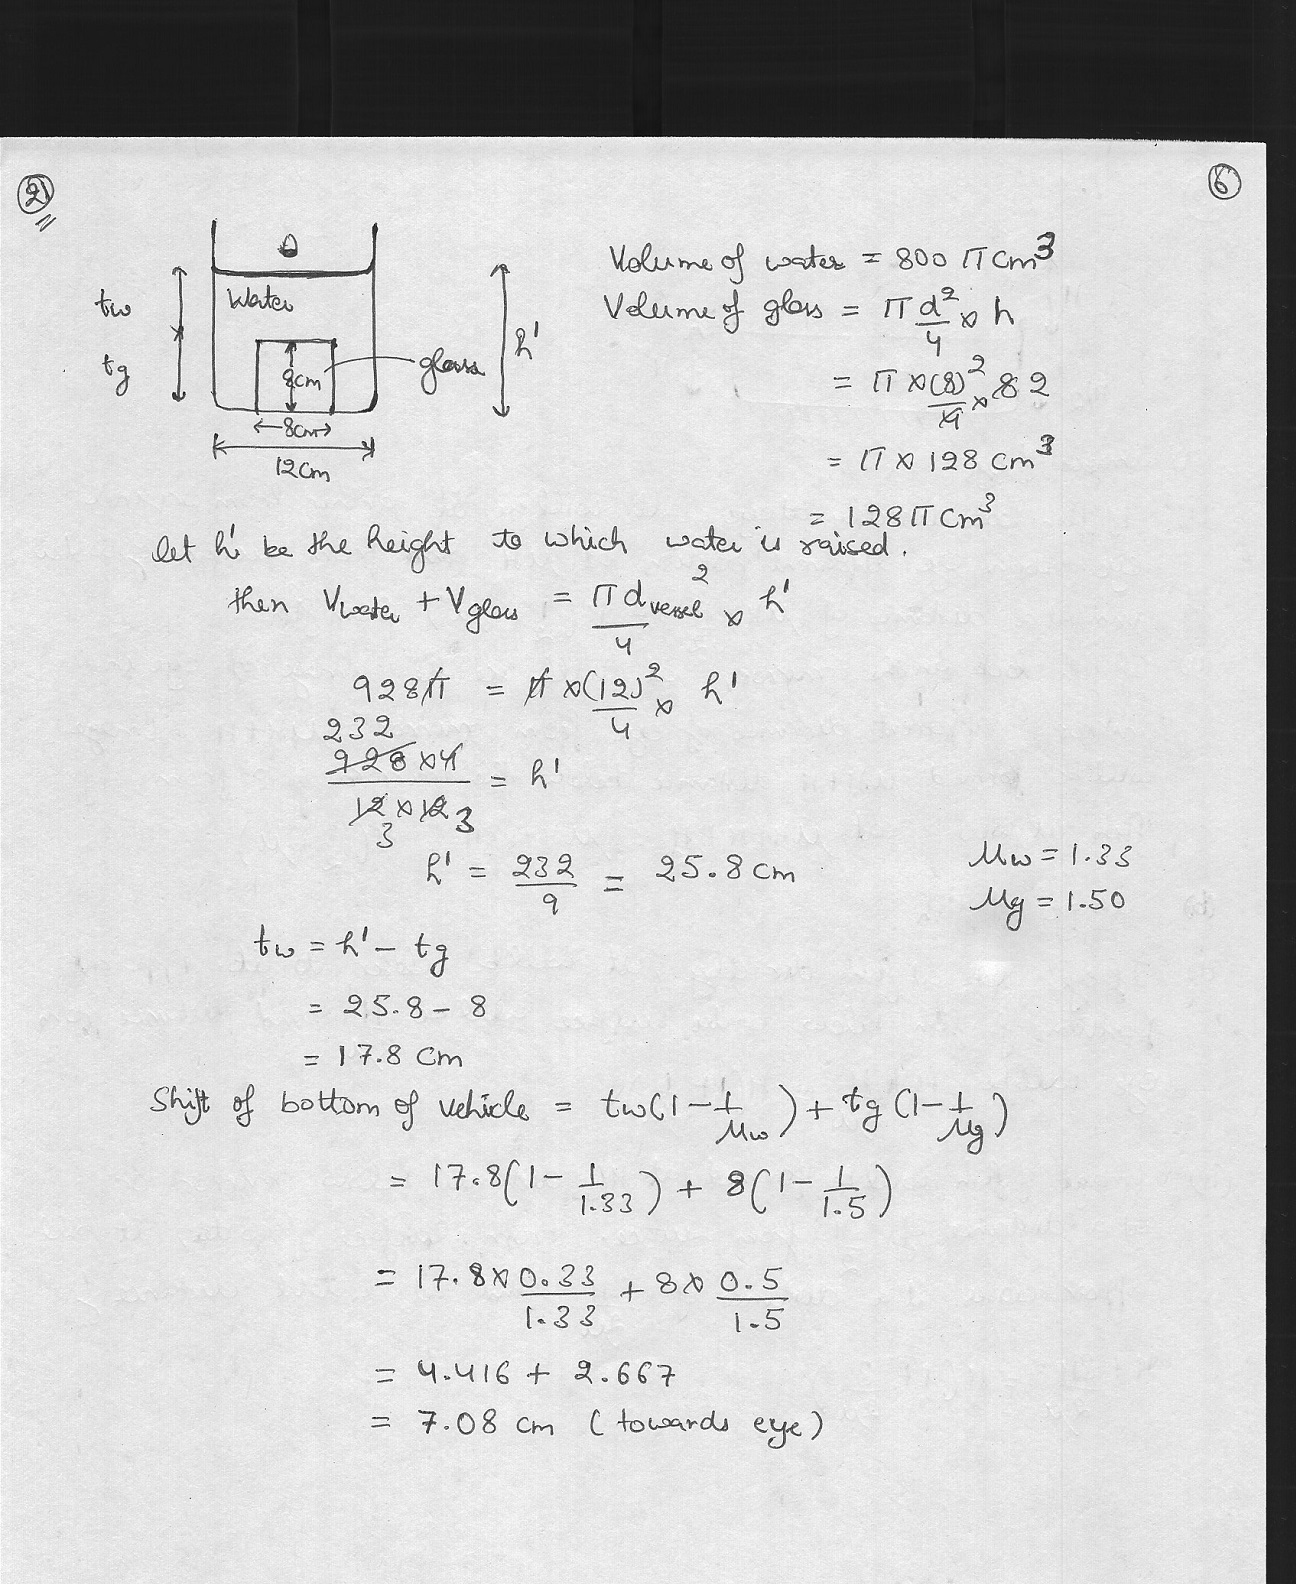 2
6
Volume of water = 800 π cm³
Volume of glass = π d²/4 × h
= π × (8)²/4 × 8 2
= π × 128 cm³
= 128 π cm³
tw
Water
tg
8cm
glass
h'
8cm
12cm
let h' be the height to which water is raised.
then Vwater + Vglass = π d vessel²/4 × h'
928π = π × (12)²/4 × h'
232
928 × 4 / 12 × 12 = h'
3 3
h' = 232/9 = 25.8 cm
μw = 1.33
μg = 1.50
tw = h' - tg
= 25.8 - 8
= 17.8 cm
Shift of bottom of vehicle = tw(1 - 1/μw) + tg(1 - 1/μg)
= 17.8(1 - 1/1.33) + 8(1 - 1/1.5)
= 17.8 × 0.33/1.33 + 8 × 0.5/1.5
= 4.416 + 2.667
= 7.08 cm (towards eye)